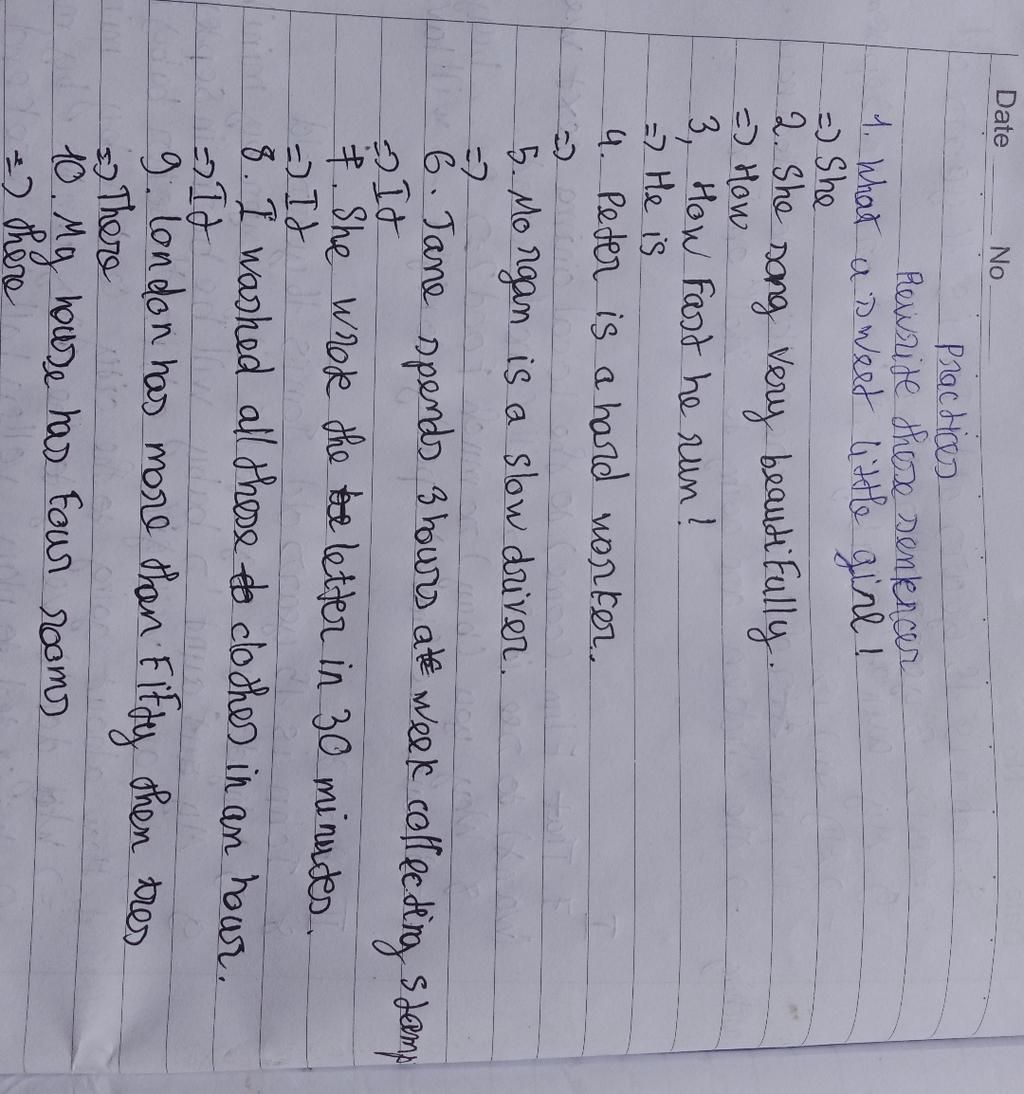 Date No
Practices
Rewrite these sentences
1. What a sweet little girl!
=> She
2. She sang very beautifully.
=> How
3, How Fast he run!
=> He is
4. Peter is a hard worker.
=>
5. Morgan is a slow driver.
=>
6. Jane spends 3 hours a week collecting stamp
=> It
7. She wrote the letter in 30 minutes.
=> It
8. I washed all these clothes in an hour.
=> It
9. london has more than Fifty them tres
=> There
10. My house has Four rooms
=> there